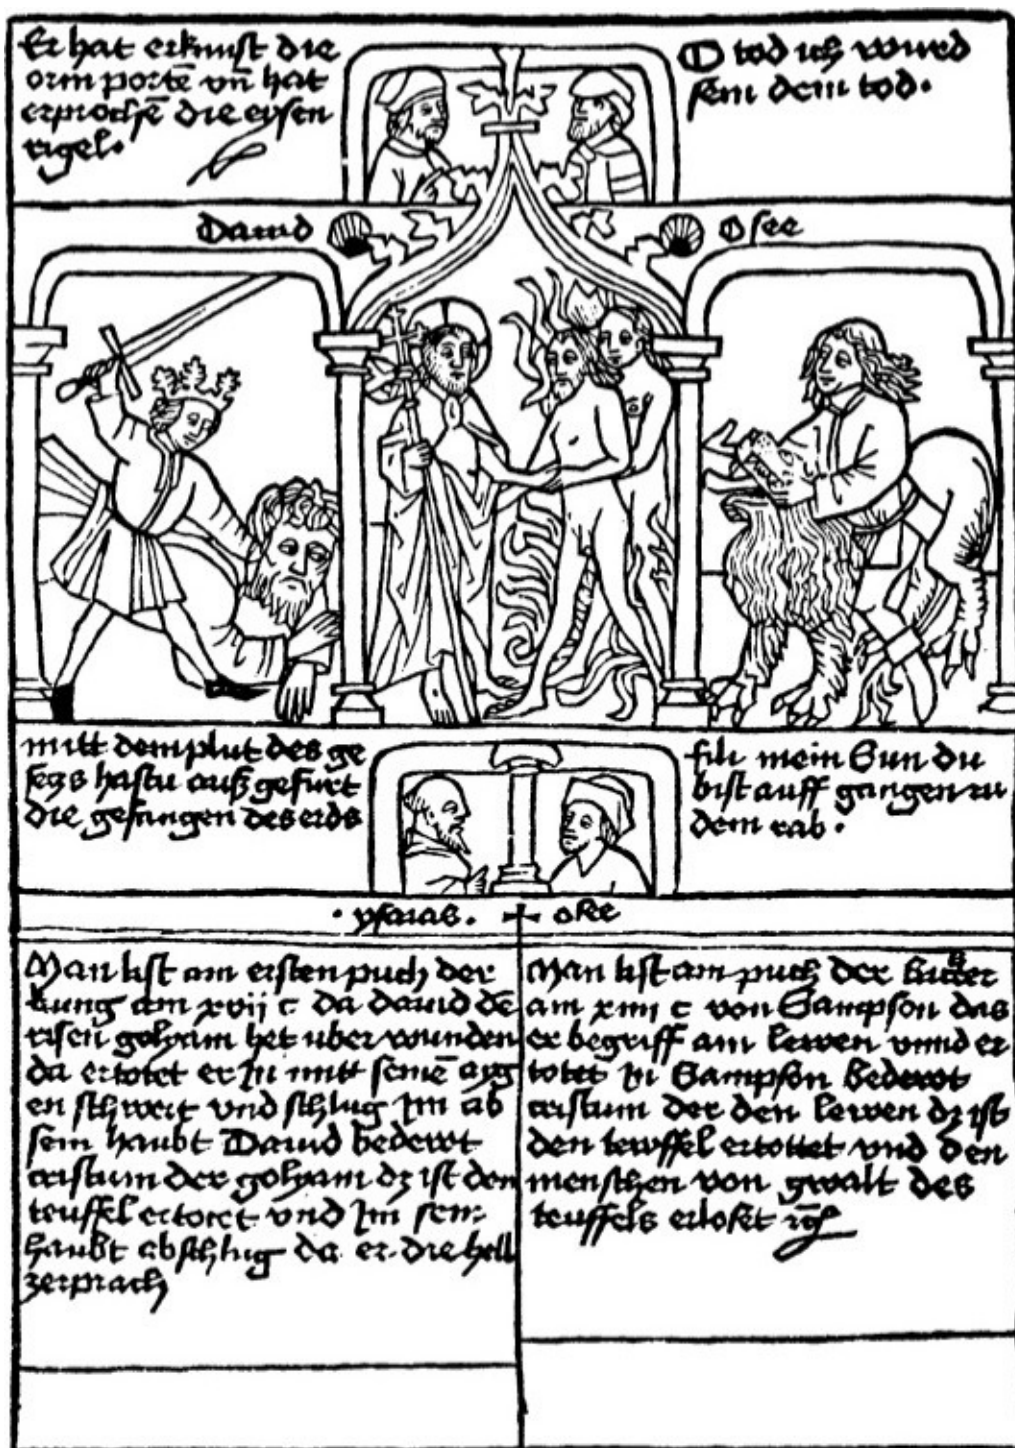 Er hat erknust die
orin portē vn̄ hat
erprochē die eysen
rigel.
O tod ich wurd
sein dein tod.
Dauid
Osee
mitt dem plut des ge
hastu auß gefurt
die gefangen des erds
fili mein Sun du
bist auff gangen zu
dem rab.
ysaias.
Man list am ersten puch der
kung am xvij c da dauid dē
risen golyam het uber wunden
da ertotet er In mitt seinē ayg
en schwert vnd schlug Im ab
sein haubt Dauid bedewt
cristum der golyam dz ist den
teuffel ertotet vnd Im sein
haubt abschlug da er die hell
zerprach
Man list am puch der
am xiiij c von Sampson das
er begriff ain lewen vnnd er
totet In Sampson bedewt
cristum der den lewen dz ist
den tewffel ertottet vnd den
menschen von gwalt des
teuffels erloset